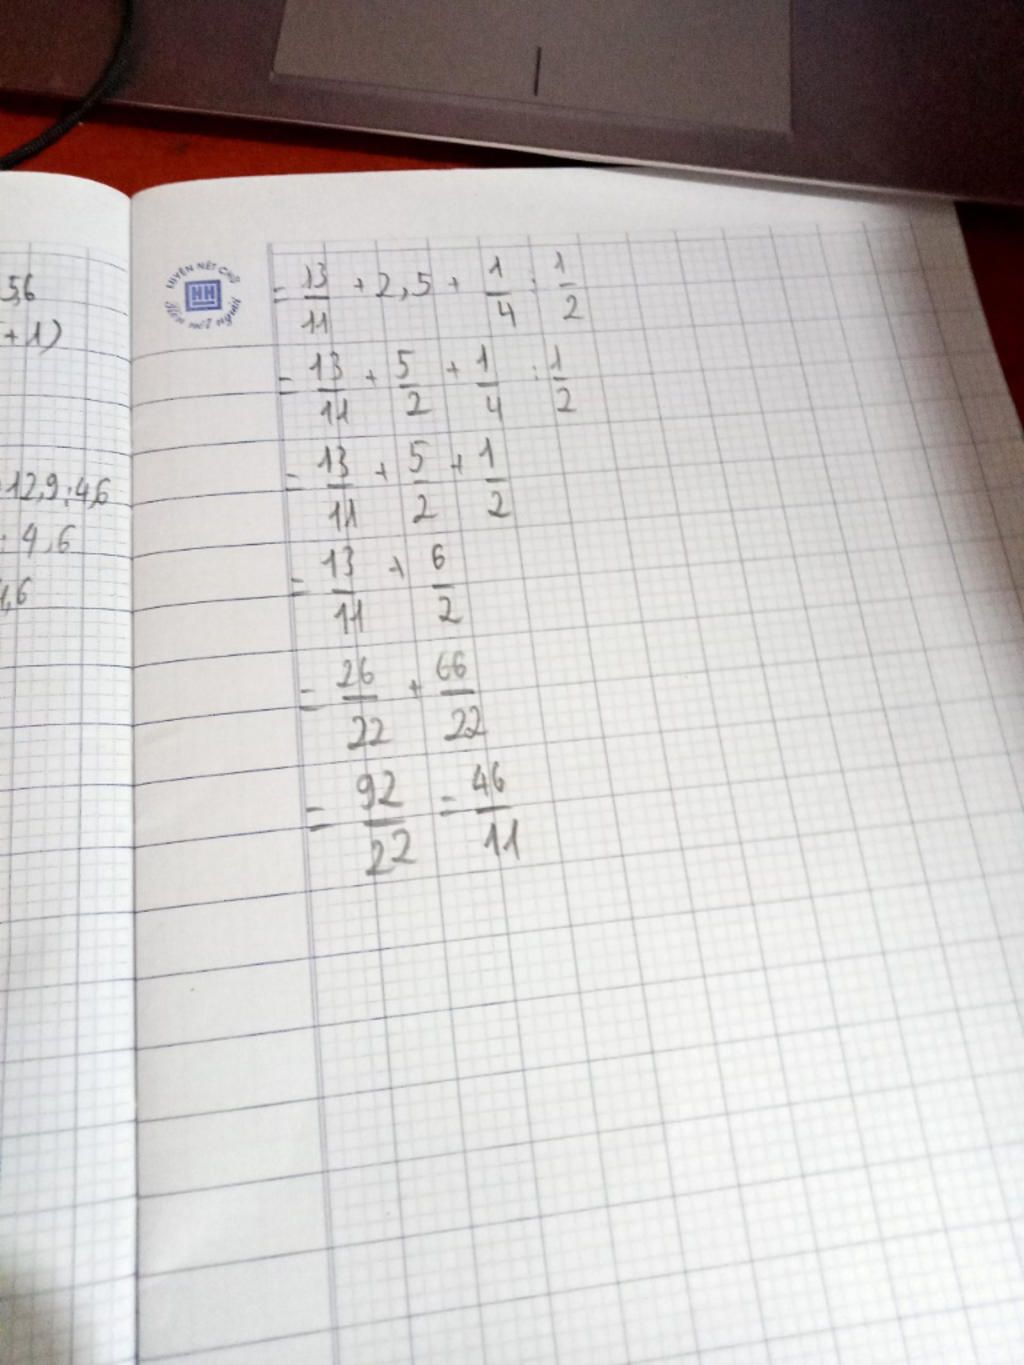 5,6
+1)
12,9:4,6
: 4,6
1,6
LUYỆN NÉT CHỮ
HH
Rèn nết người
= 13/11 + 2,5 + 1/4 : 1/2
= 13/11 + 5/2 + 1/4 : 1/2
= 13/11 + 5/2 + 1/2
= 13/11 + 6/2
= 26/22 + 66/22
= 92/22 = 46/11